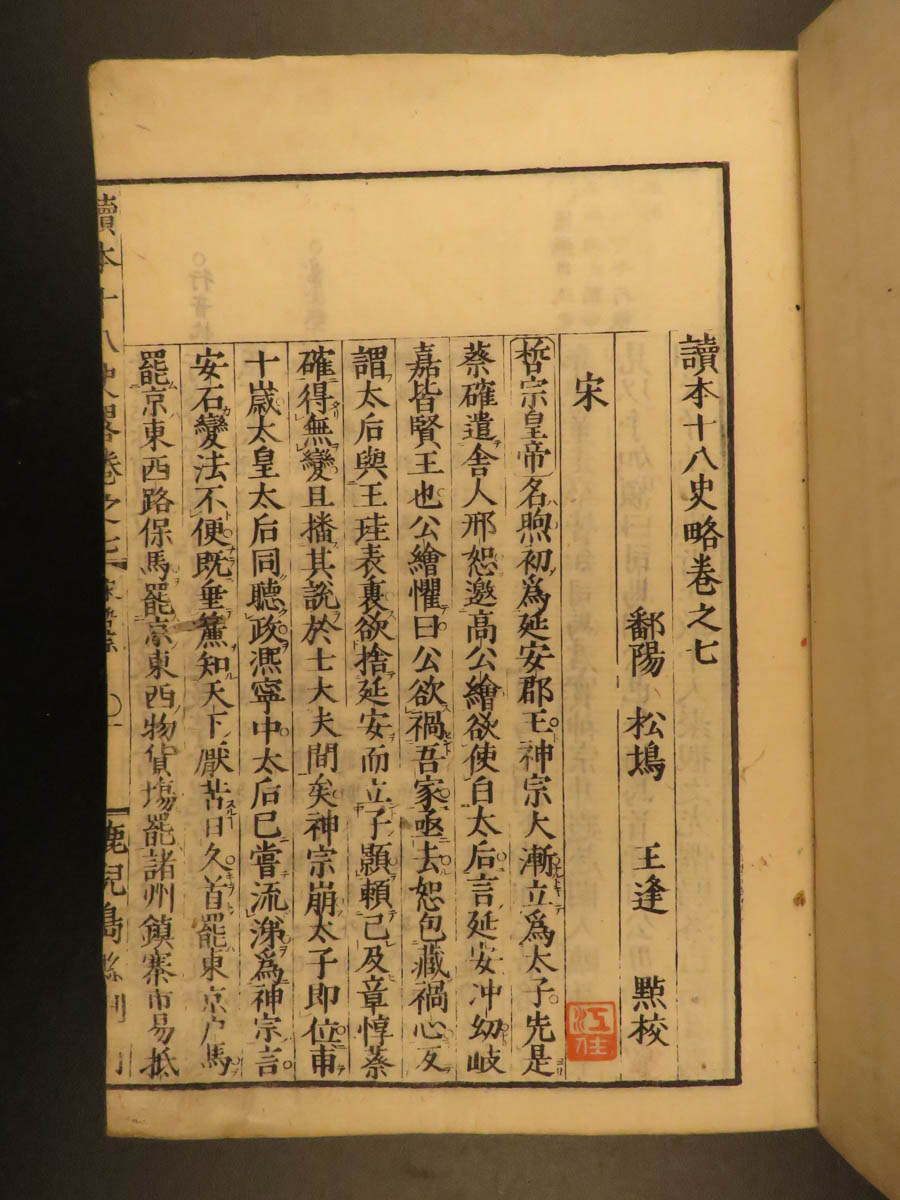 讀本十八史略卷之七
鄱陽 松塢 王逢 點校
宋
哲宗皇帝名煦初爲延安郡王神宗大漸立爲太子先是
蔡確遣舍人邢恕邀高公繪欲使白太后言延安冲幼岐
嘉皆賢王也公繪懼曰公欲禍吾家亟去恕包藏禍心反
謂太后與王珪表裏欲捨延安而立子顥頼己及章惇蔡
確得無變且播其説於士大夫間矣神宗崩太子即位甫
十歳太皇太后同聽政熈寧中太后已嘗流涕爲神宗言
安石變法不便既垂簾知天下厭苦日久首罷東京户馬
罷京東西路保馬罷京東西物貨塲罷諸州鎮寨市易抵
讀本十八史略卷之七
鹿児島縣刊
江